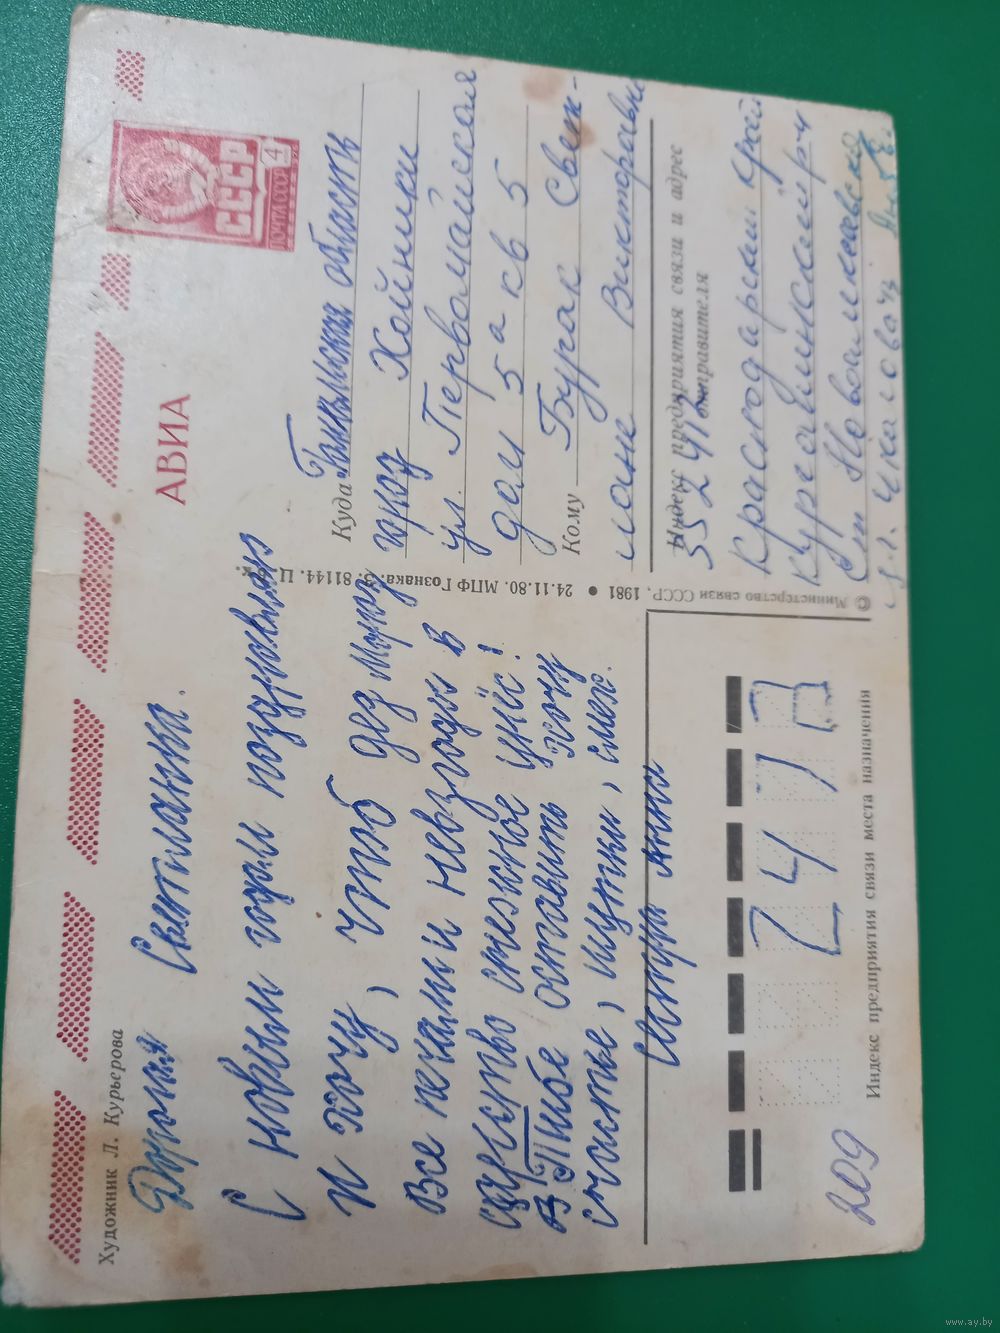 Художник Л. Курьерова
АВИА
СССР
ПОЧТА СССР 4
Дорогая Светланка.
С новым годом поздравляю
и хочу, чтоб дед Мороз
Все печали и невзгоды в
царство снежное унёс!
В Тибе оставить хочу
счастье, шутки, смех.
Куда Гомельская область
гор Хойники
ул. Первомайская
дом 5а кв 5
Кому Бурак Свет-
лане Викторовне
Индекс предприятия связи и адрес
отправителя
352416
Краснодарский край
Курганинский р-н
Ст Новоалексеевская
Чкалова
© Министерство связи СССР, 1981 • 24.11.80. МПФ Гознака. З. 81144. Ц.
247
Индекс предприятия связи места назначения
209
www.ay.by